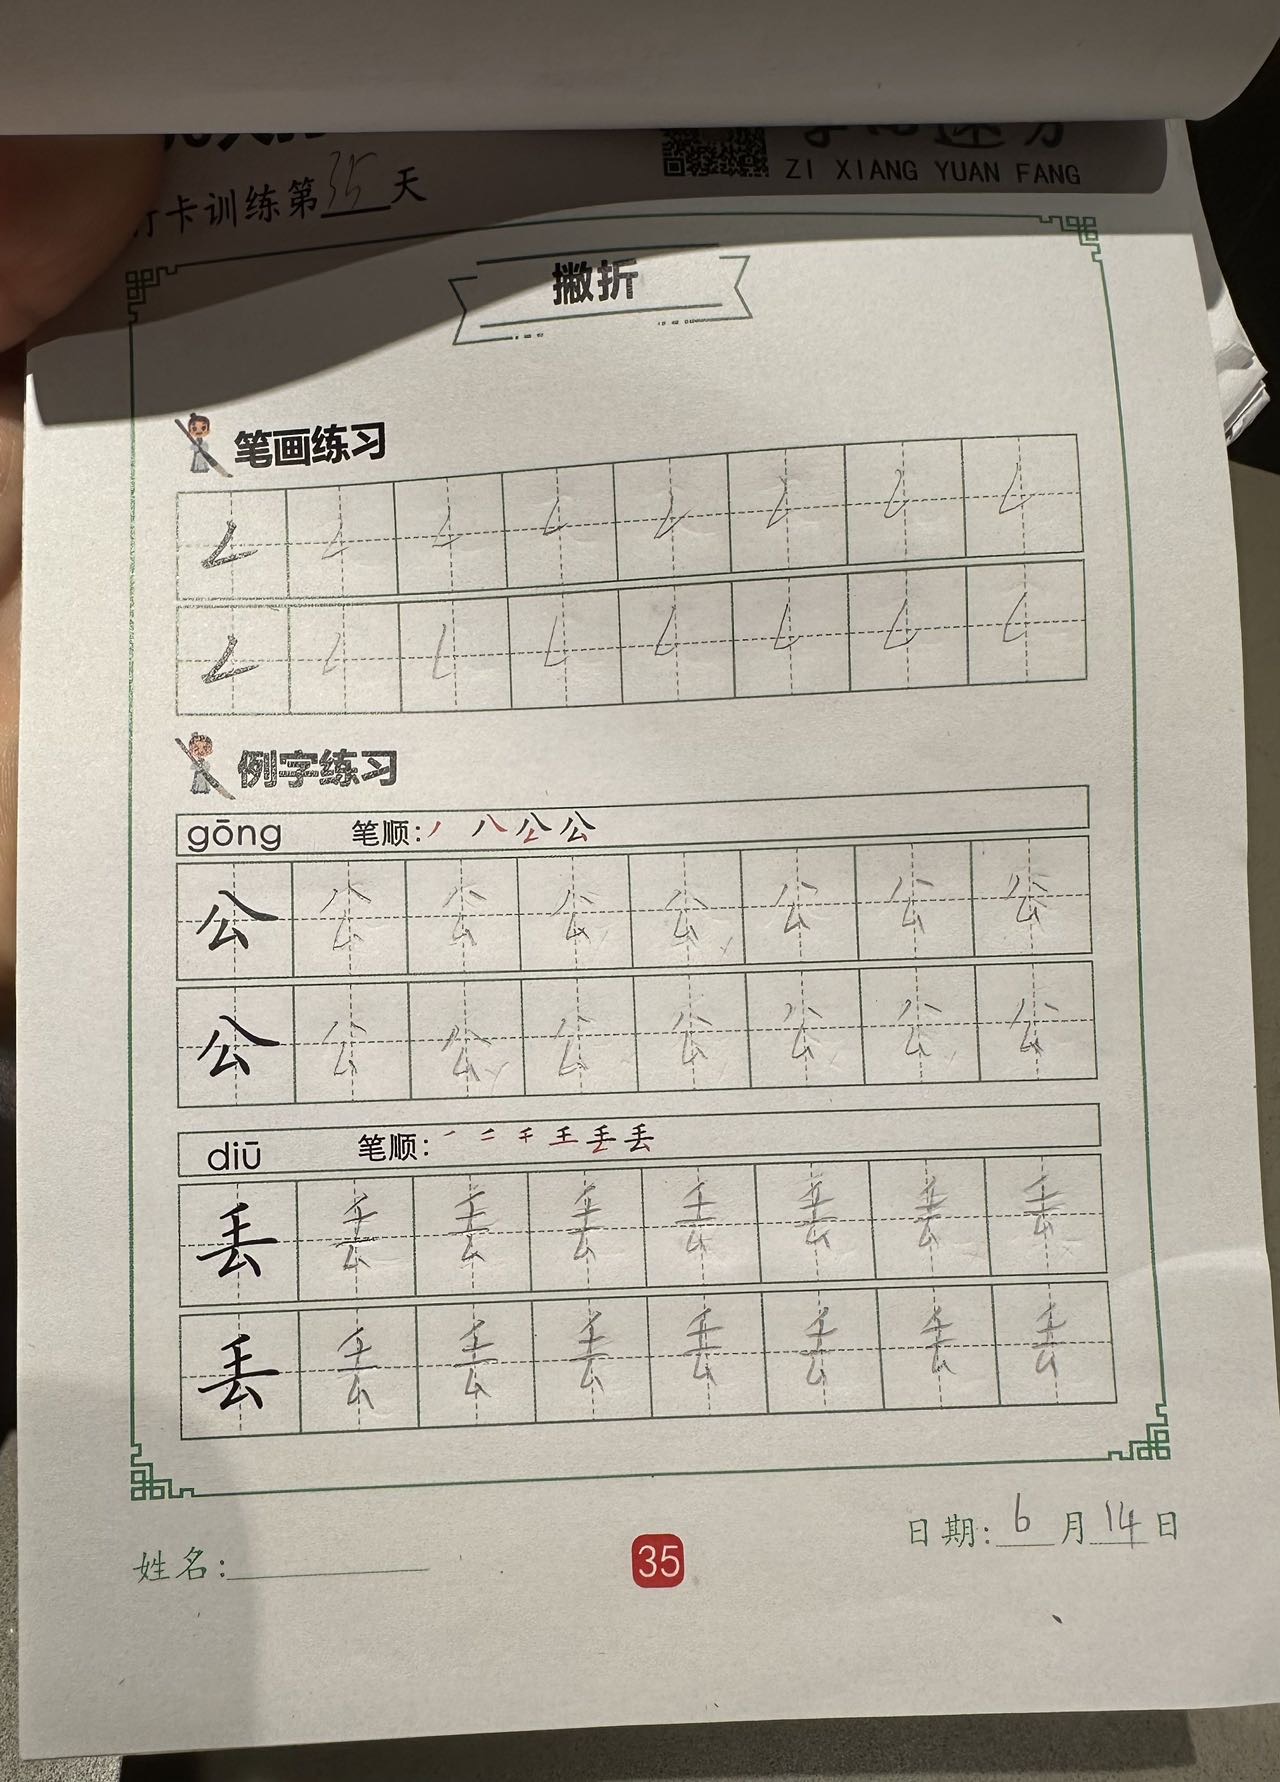 打卡训练第35天
ZI XIANG YUAN FANG
撇折
笔画练习
例字练习
gōng 笔顺: 丿 八 公 公
公 公 公 公 公 公 公 公
公 公 公 公 公 公 公 公
diū 笔顺: 一 二 千 王 丢 丢
丢 丢 丢 丢 丢 丢 丢 丢
丢 丢 丢 丢 丢 丢 丢 丢
日期: 6月14日
姓名:
35